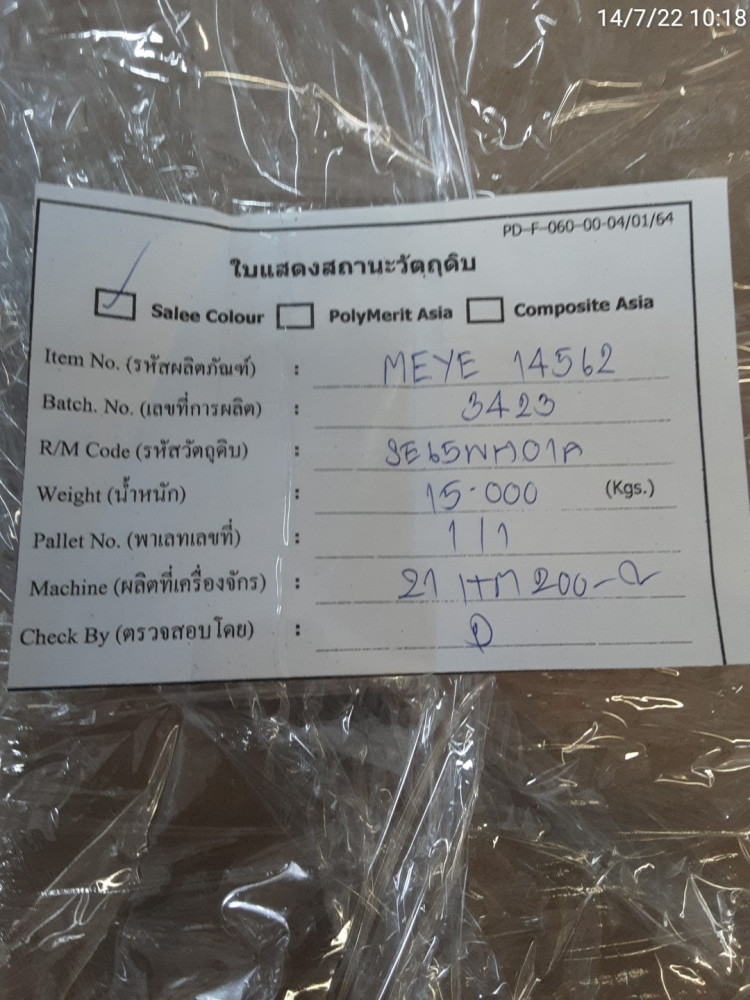 14/7/22 10:18
PD-F-060-00-04/01/64
ใบแสดงสถานะวัตถุดิบ
Salee Colour PolyMerit Asia Composite Asia
Item No. (รหัสผลิตภัณฑ์) : MEYE 14562
Batch. No. (เลขที่การผลิต) : 3423
R/M Code (รหัสวัตถุดิบ) :
Weight (น้ำหนัก) : 15.000 (Kgs.)
Pallet No. (พาเลทเลขที่) : 1/1
Machine (ผลิตที่เครื่องจักร) : 21
Check By (ตรวจสอบโดย) :